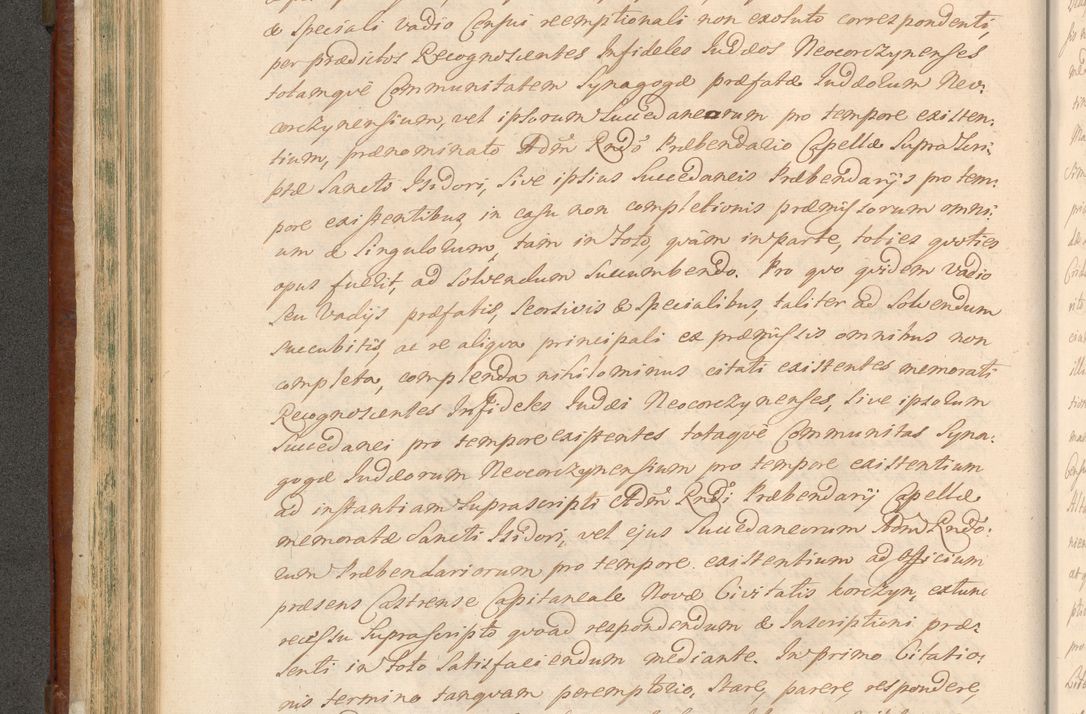 & Speciali Vadio Censui reemptionali non exoluto correspondenti,
per prædictos Recognoscentes Infideles Judæos Neocorczynenses
totamqvè Communitatem Synagogæ præfatæ Judæorum Neo-
corczynensium, vel ipsorum Succedaneorum pro tempore existen-
tium, prænominato Adm̃ Rndo Præbendario Capellæ Supra Scri-
ptæ Sancti Isidori, Sive ipsius Succedaneis Præbendarijs pro tem-
pore existentibus, in casu non completionis præmissorum omni-
um & Singulorum, tam in Toto, qvàm in parte, toties qvoties
opus fuerit, ad Solvendum Succumbendo. Pro qvo qvidem Vadio
Seu Vadijs præfatis, Seorsivis & Specialibus, taliter ad Solvendum
Succubitis, ac re aliqva principali ex præmissis omnibus non
completa, complenda nihilominus citati existentes memorati
Recognoscentes Infideles Judæi Neocorczynenses, Sive ipsorum
Succedanei pro tempore existentes totaqvè Communitas Syna-
gogæ Judæorum Neocorczynensium pro tempore existentium
ad instantiam Suprascripti Adm̃ Rndi Præbendarij Capellæ
memoratæ Sancti Isidori, vel ejus Succedaneorum Adm̃ Rndo-
rum Præbendariorum pro tempore existentium ad Officium
præsens Castrense Capitaneale Novæ Civitatis Korczyn, extunc
recessu Suprascripto qvoad respondendum & Inscriptioni præ-
senti in Toto Satisfaciendum mediante. In primo Citatio-
nis termino tanqvam peremptorio, Stare, parere, respondere,